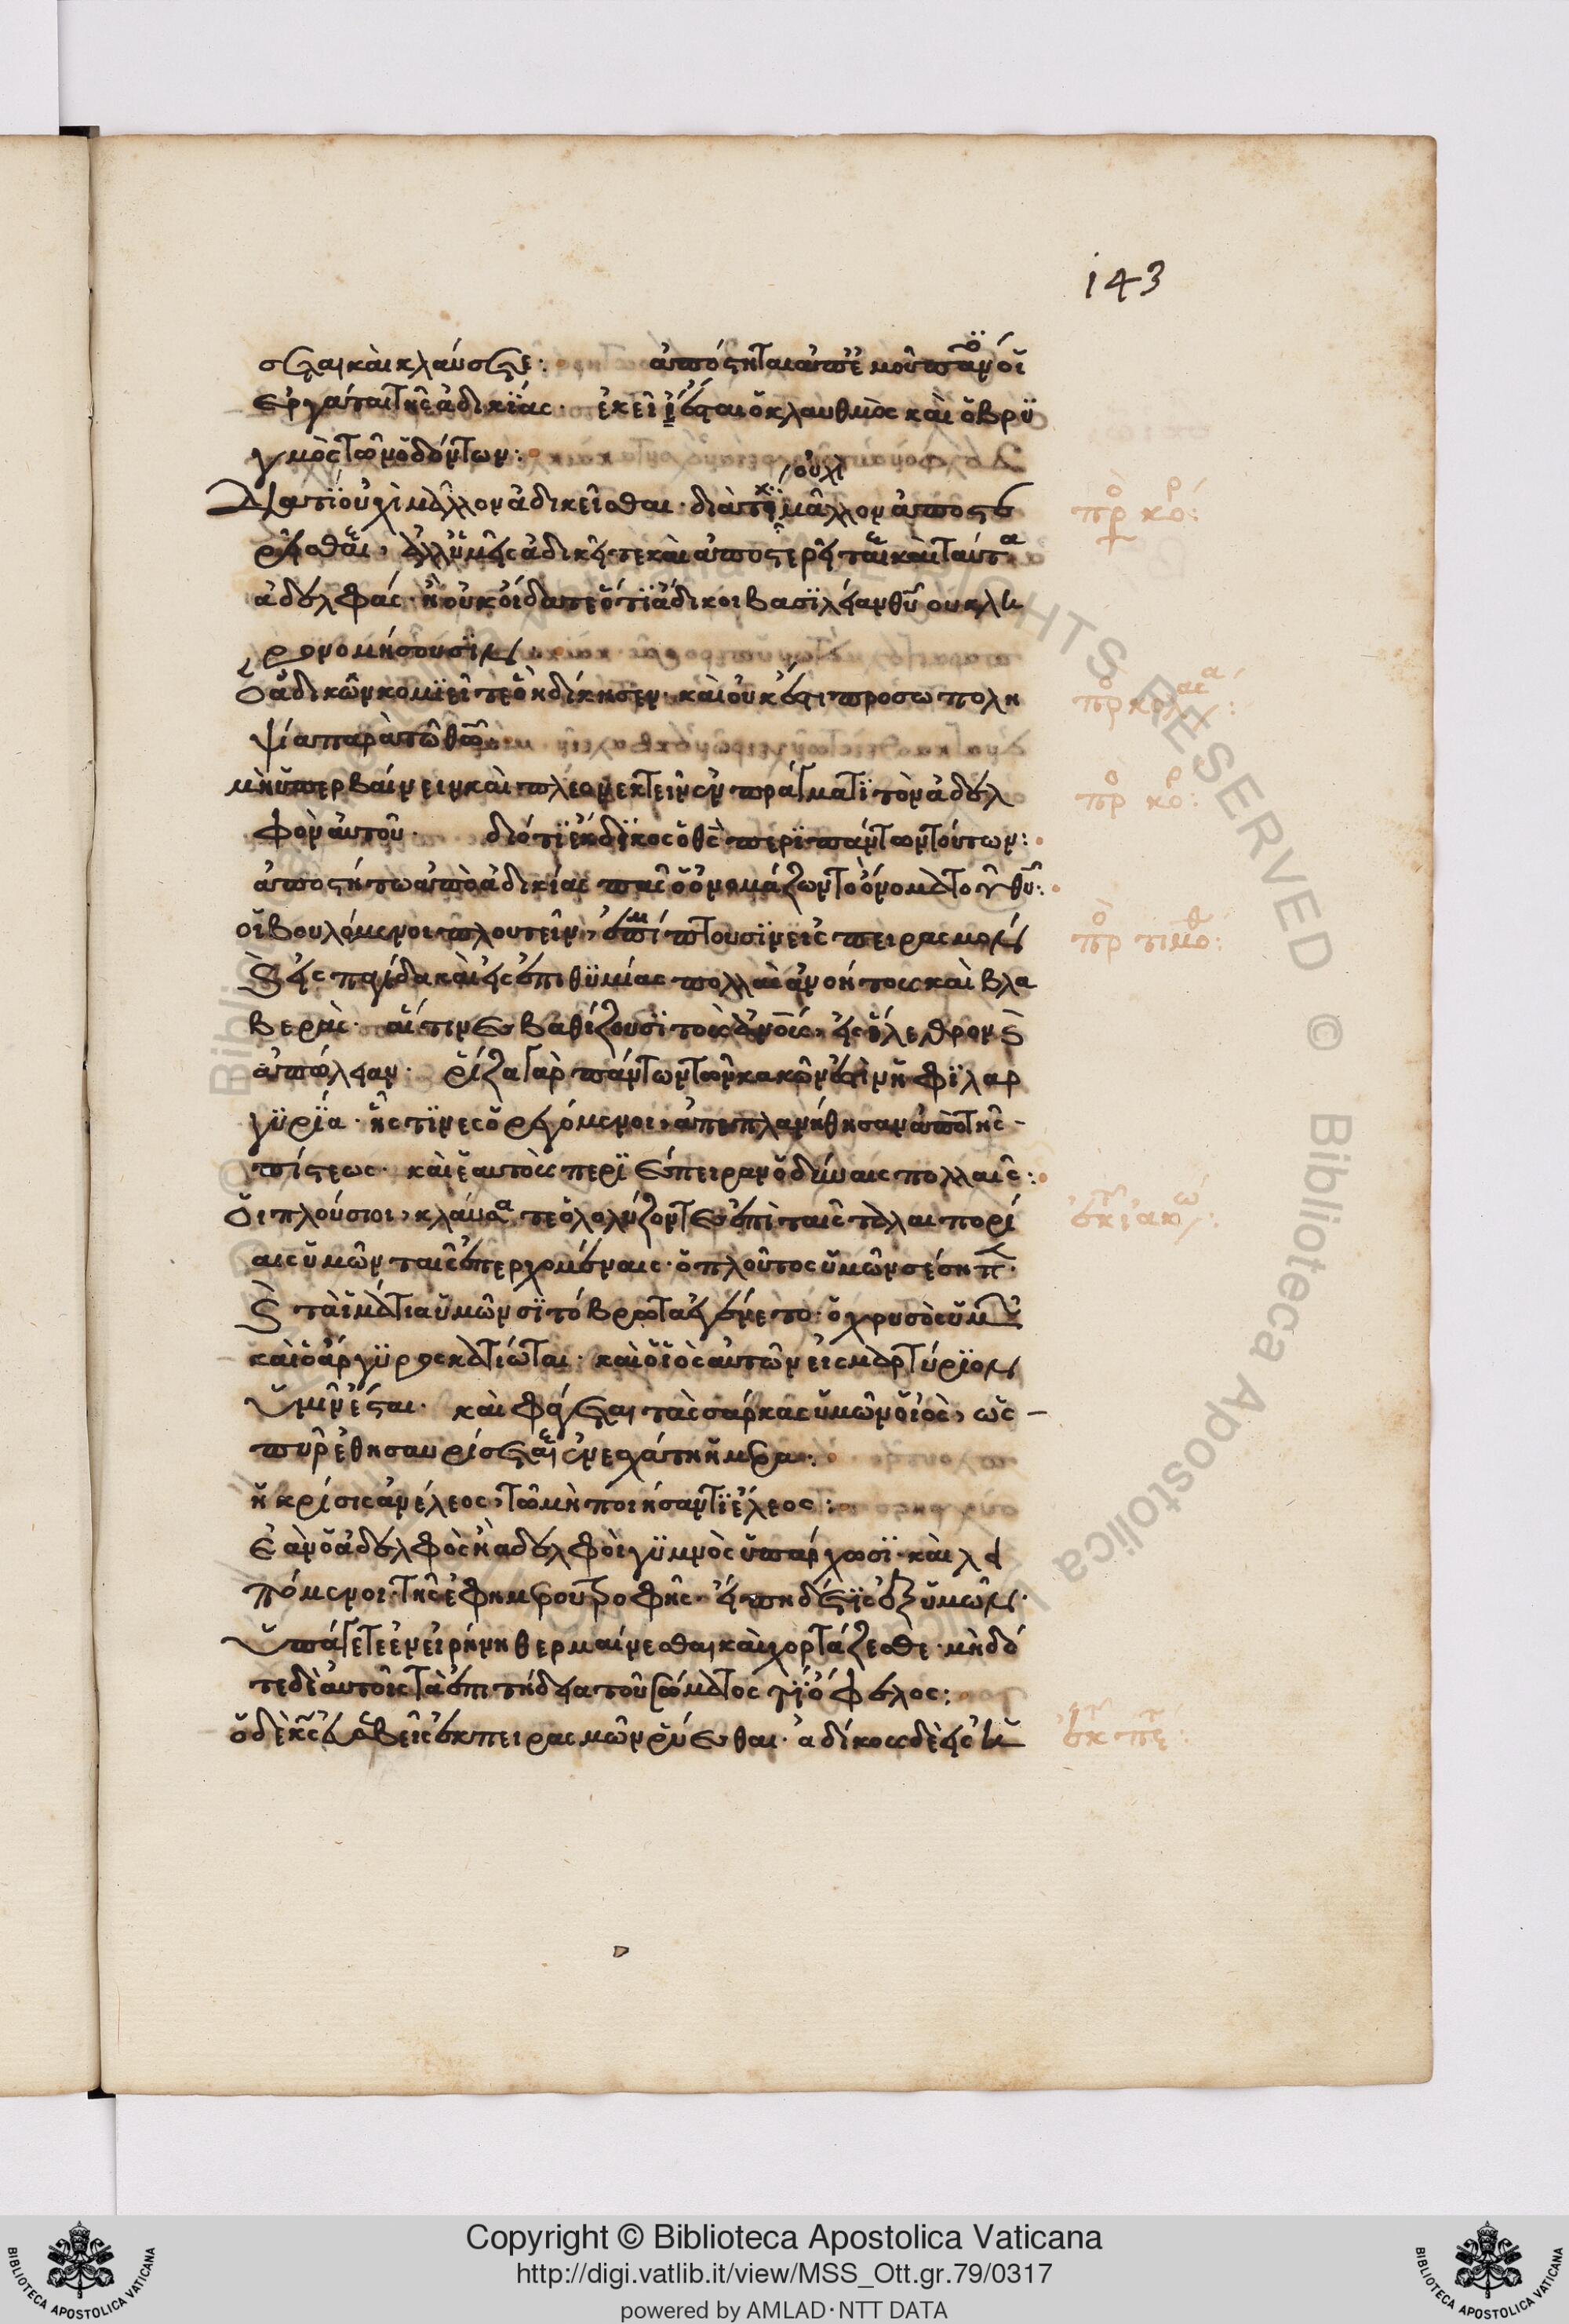 143
σεται καὶ κλαύσετε: ἀπόστηται ἀπ' ἐμοῦ πάντ οἱ
ἐργάται τῆς ἀδικίας. ἐκεῖ ἔσται ὁ κλαυθμὸς καὶ ὁ βρυ
γμὸς τῶν ὀδόντων:
οὐχὶ
Διατί οὐχὶ μᾶλλον ἀδικεῖσθαι. διατί μᾶλλον ἀποστε
ρεῖσθαι, ἀλλ' ὑμεῖς ἀδικεῖτε καὶ ἀποστερεῖται καὶ ταῦτα
ἀδελφάς. ἢ οὐκ οἴδατε ὅτι ἄδικοι βασιλείαν θυ ου κλη
ρονομήσουσιν
ὁ ἀδικῶν κομιεῖτε ὃ ηδίκησεν. καὶ οὐκ ἔστι προσωπολη
ψία παρὰ τῶ θω
μὴ ὑπερβαίνειν καὶ πλεονεκτεῖν ἐν πράγματι τὸν ἀδελ
φὸν αὐτοῦ. διότι ἔκδικος ὁ θς περὶ πάντων τούτων:
ἀποστήτω ἀπὸ ἀδικίας πᾶς ὁ ὀνομάζων τὸ ὄνομα τοῦ θυ:
οἱ βουλόμενοι πλουτεῖν, ἐμπίπτουσιν εἰς πειρασμὸν
καὶ εἰς παγίδα καὶ εἰς ἐπιθυμίας πολλὰς ἀνοήτους καὶ βλα
βεράς. αἵτινες βαθίζουσι τοὺς ἀνους, εἰς ὄλεθρον καὶ
ἀπώλειαν. ῥίζα γὰρ πάντων τῶν κακῶν ἐστὶν ἡ φιλαρ
γυρία. ἧς τινὲς ὀρεγόμενοι, ἀπεπλανήθησαν ἀπὸ τῆς
πίστεως. καὶ ἑαυτοὺς περιέπειραν ὀδύναις πολλαῖς:
Οἱ πλούσιοι, κλαύσατε ὀλολύζοντες ἐπὶ ταῖς ταλαιπορί
αις ὑμῶν ταῖς ἐπερχομέναις. ὁ πλοῦτος ὑμῶν σέσηπ.
καὶ τὰ ἱμάτια ὑμῶν σιτόβρωτα ἐγένετο. ὁ χρυσὸς ὑμῶν
καὶ ὁ ἄργυρος κατίωται. καὶ ὁ ἰὸς αὐτῶν εἰς μαρτύριον
ὑμῖν ἔσται. καὶ φάγεται τὰς σάρκας ὑμῶν ὁ ἰὸς, ὡς
πῦρ ἐθησαυρίσεται ἐν ἐσχάτη ἡμέρα:
ἡ κρίσις ἀνέλεος, τῶ μὴ ποιήσαντι ἔλεος:
ἐὰν ὁ ἀδελφὸς ἢ ἀδελφοὶ γυμνὸς ὑπάρχωσι. καὶ λει
πόμενοι τῆς ἐφημέρου τροφῆς. εἴπη δέ τις ἐξ ὑμῶν.
ὑπάγετε ἐν εἰρήνη θερμαίνεσθαι καὶ χορτάζεσθε. μὴ δό
τε δὲ αὐτοῖς τὰ ἐπιτήδεια τοῦ σώματος τί ὄφελος;
πρ κο:
πρ κολας:
πρ κο:
πρ τιμο:
ἐκ ιακω:
ἐκ πε:
Copyright © Biblioteca Apostolica Vaticana
http://digi.vatlib.it/view/MSS_Ott.gr.79/0317
powered by AMLAD·NTT DATA
BIBLIOTECA APOSTOLICA VATICANA
BIBLIOTECA APOSTOLICA VATICANA